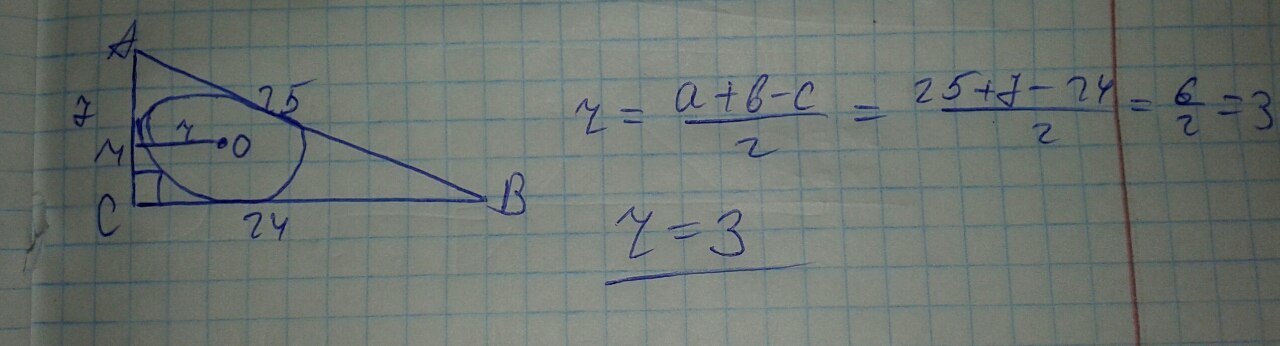 A
25
7
r
M
O
C
B
24
r = (a+b-c)/2 = (25+7-24)/2 = 6/2 = 3
r = 3